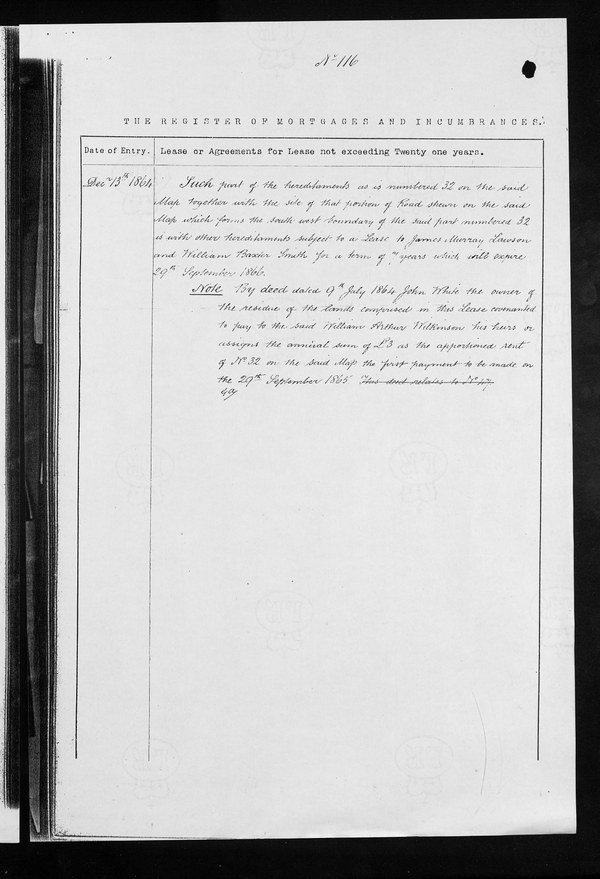 No 116
THE REGISTER OF MORTGAGES AND INCUMBRANCES.
Date of Entry.
Lease or Agreements for Lease not exceeding Twenty one years.
Decr 13th 1864
Such part of the hereditaments as is numbered 32 on the said
Map together with the site of that portion of Road shewn on the said
Map which forms the south west boundary of the said part numbered 32
is with other hereditaments subject to a Lease to James Murray Lawson
and William Baxter Smith for a term of 7 years which will expire
29th September 1866.
Note By deed dated 9th July 1864 John White the owner of
the residue of the lands comprised in this Lease covenanted
to pay to the said William Arthur Wilkinson his heirs or
assigns the annual sum of £3 as the apportioned rent
of No 32 on the said Map the first payment to be made on
the 29th September 1865 This deed relates to No 47